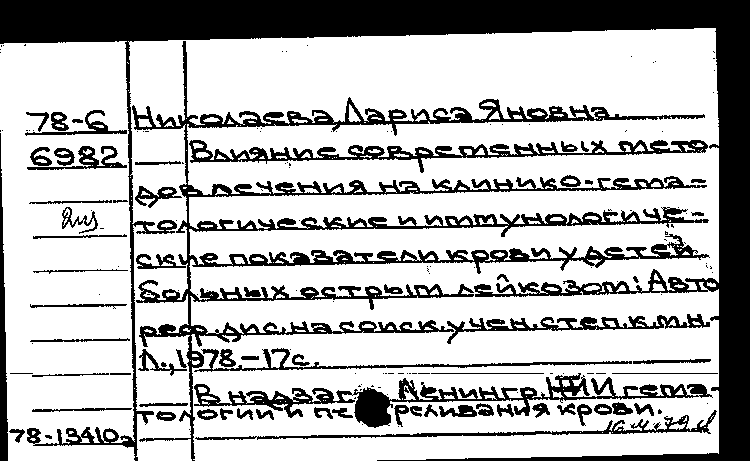 78-6 Николаева, Лариса Яновна.
6982 Влияние современных мето-
дов лечения на клинико-гема-
2 из тологические и иммунологиче-
ские показатели крови у детей
больных острым лейкозом: Авто
реф. дис. на соиск. учен. степ. к.м.н.-
Л., 1978.-17с.
В надзаг. Ленингр. НИИ гема-
тологии и переливания крови.
78-13410а